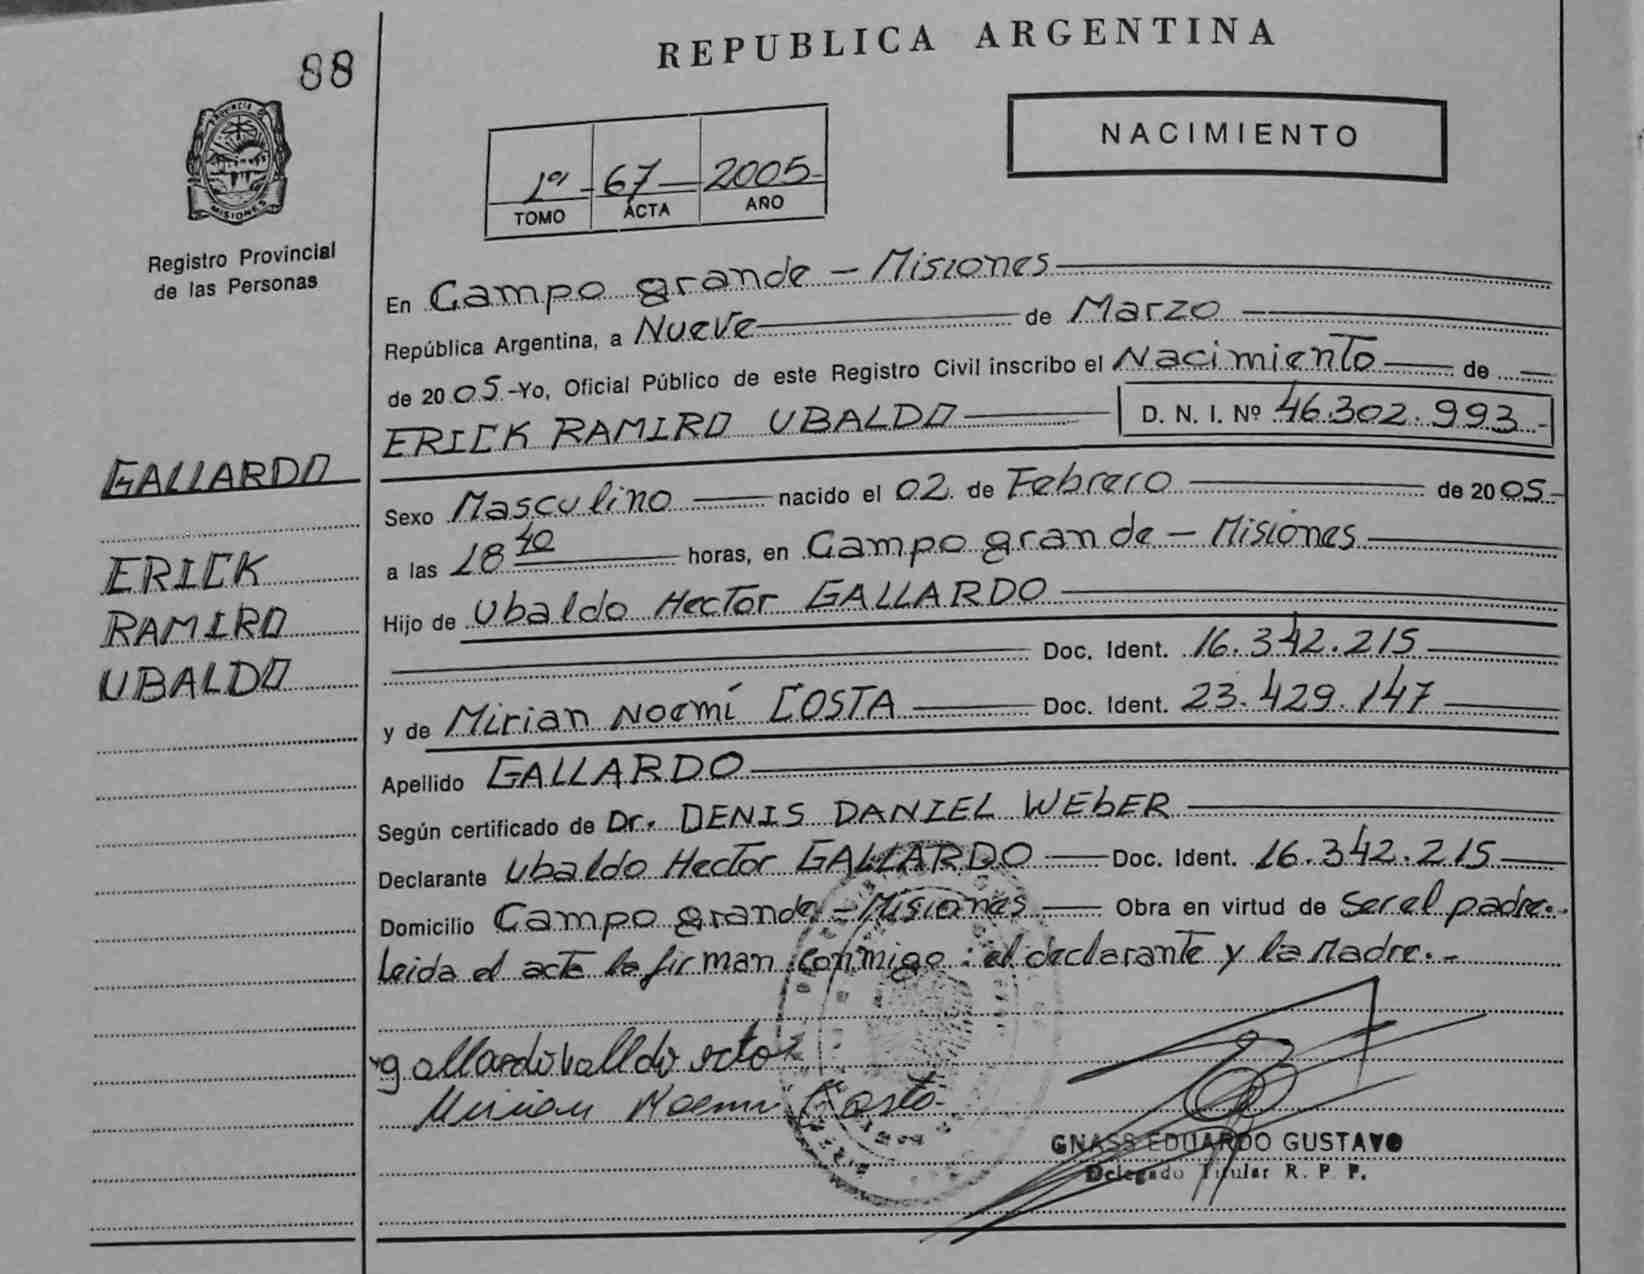 88
REPUBLICA ARGENTINA
PROVINCIA
MISIONES
NACIMIENTO
1º - 67 - 2005
TOMO ACTA AÑO
Registro Provincial
de las Personas
En Campo grande - Misiones
República Argentina, a Nueve de Marzo
de 2005 - Yo, Oficial Público de este Registro Civil inscribo el Nacimiento de
ERICK RAMIRO UBALDO D. N. I. Nº 46.302.993 -
GALLARDO
ERICK
RAMIRO
UBALDO
Sexo Masculino nacido el 02 de Febrero de 2005 -
a las 18 40 horas, en Campo grande - Misiones
Hijo de Ubaldo Hector GALLARDO
Doc. Ident. 16.342.215
y de Mirian Noemí COSTA Doc. Ident. 23.429.147
Apellido GALLARDO
Según certificado de Dr. DENIS DANIEL WEbER
Declarante Ubaldo Hector GALLARDO Doc. Ident. 16.342.215
Domicilio Campo grande - Misiones Obra en virtud de Ser el padre.
Leida el acta la firman conmigo: el declarante y la Madre. -
gallardo valldo ector
Mirian Noemi Costa
GNASS EDUARDO GUSTAVO
Delegado Titular R. P. P.